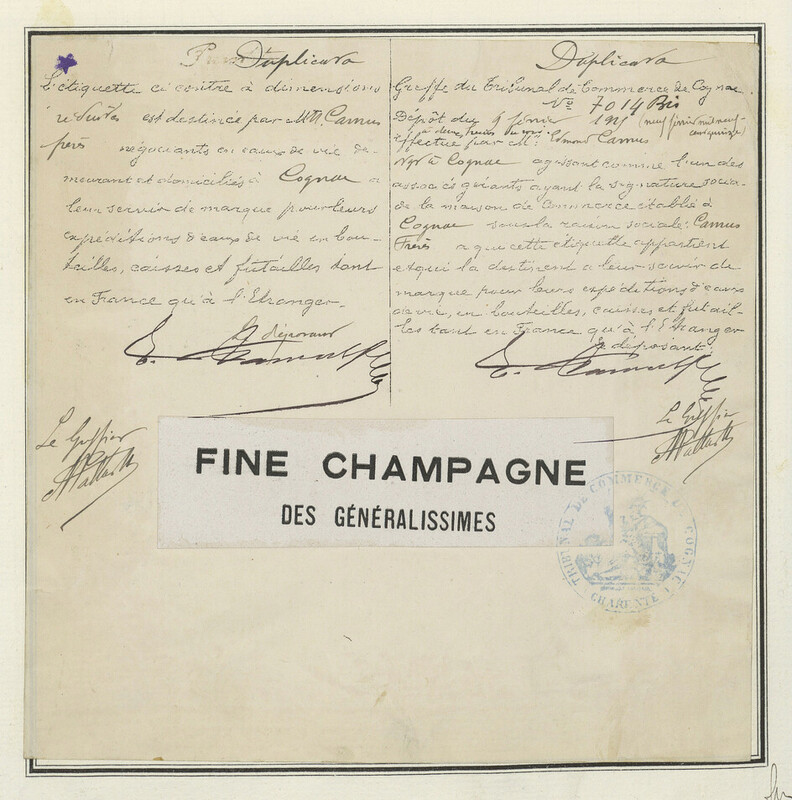 Duplicata
L'étiquette ci contre à dimensions
réduites est destinée par MM. Camus
frères négociants en eaux de vie de-
meurant et domiciliés à Cognac a
leur servir de marque pour leurs
expéditions d'eaux de vie en bou-
teilles, caisses et futailles tant
en France qu'à l'Etranger.
Le déposant
Le Greffier
Duplicata
Greffe du Tribunal de Commerce de Cognac
No 7014 Bis
Dépôt du 9 février 1915 (neuf février mil neuf-
cent quinze)
à deux heures du soir
Effectué par Mr. Edmond Camus
Ngt à Cognac agissant comme l'un des
associés gérants ayant la signature socia-
le de la maison de Commerce établie à
Cognac sous la raison sociale: Camus
Frères à qui cette étiquette appartient
et qui la destinent a leur servir de
marque pour leurs expéditions d'eaux
de vie, en bouteilles, caisses et futail-
les tant en France qu'à l'Etranger
Le déposant:
Le Greffier
FINE CHAMPAGNE
DES GÉNÉRALISSIMES
TRIBUNAL DE COMMERCE DE COGNAC
CHARENTE